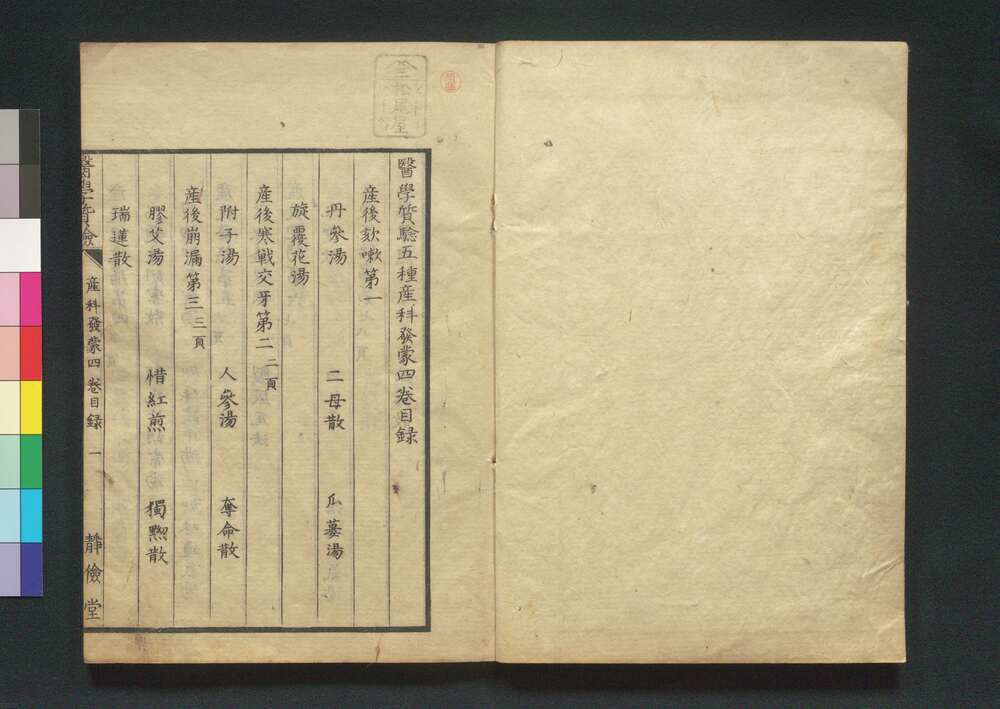 醫學質驗五種産科發蒙四卷目録
産後欬嗽第一
丹參湯 二母散 瓜蔞湯
旋覆花湯
産後寒戰交牙第二 二頁
附子湯 人參湯 奪命散
産後崩漏第三 三頁
膠艾湯 惜紅煎 獨黑散
瑞蓮散
醫學質驗 産科發蒙四卷目録 一 靜儉堂